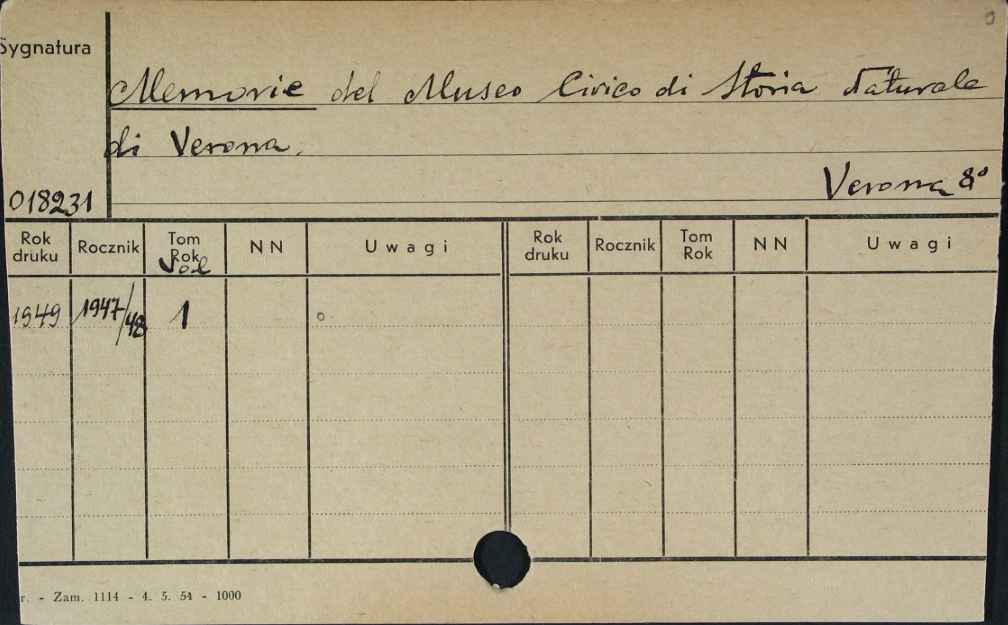 Sygnatura
Memorie del Museo Civico di Storia Naturale
di Verona.
Verona 8°
018231
Rok druku Rocznik Tom Rok Vol NN Uwagi Rok druku Rocznik Tom Rok NN Uwagi
1949 1947/48 1
r. - Zam. 1114 - 4. 5. 54 - 1000